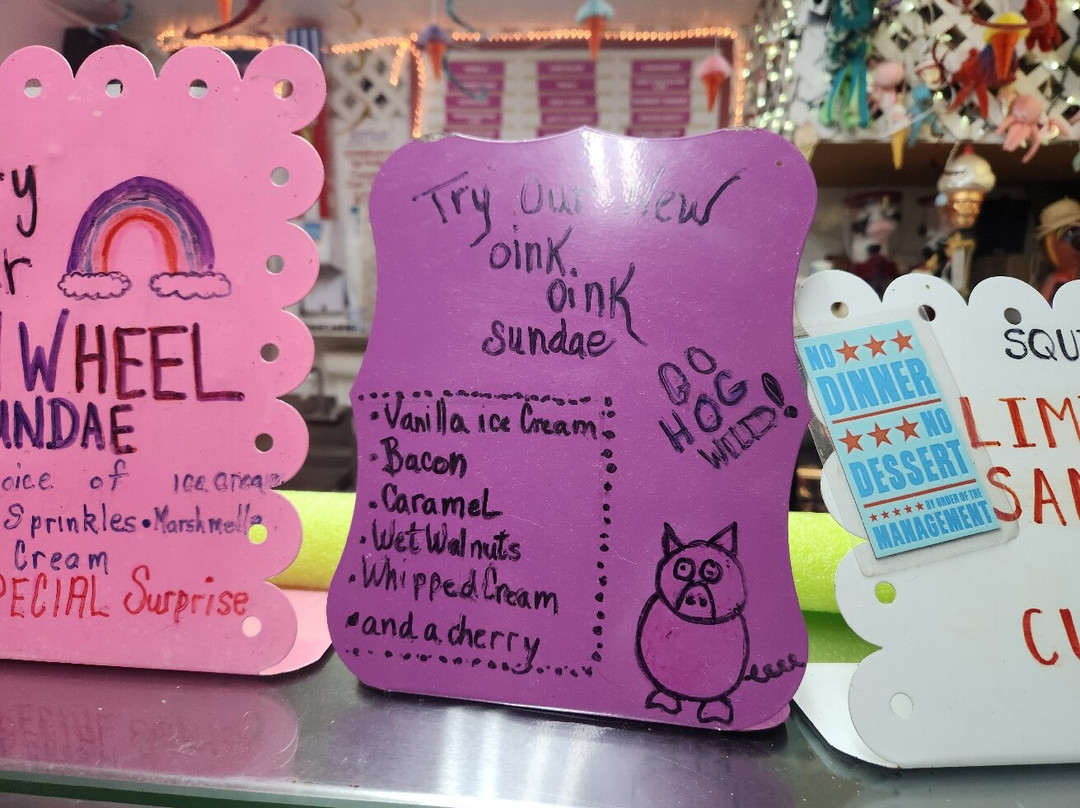 WHEEL
SUNDAE
of ice cream
Sprinkles • Marshmello
Cream
SPECIAL Surprise
Try our New
oink
oink
sundae
GO
HOG
WILD!
• Vanilla ice Cream
• Bacon
• Caramel
• Wet Walnuts
• Whipped Cream
• and a cherry
NO ★★★
DINNER
★★★ NO
DESSERT
★★★★★ BY ORDER OF THE
MANAGEMENT
SQU
LIM
SAN
CU